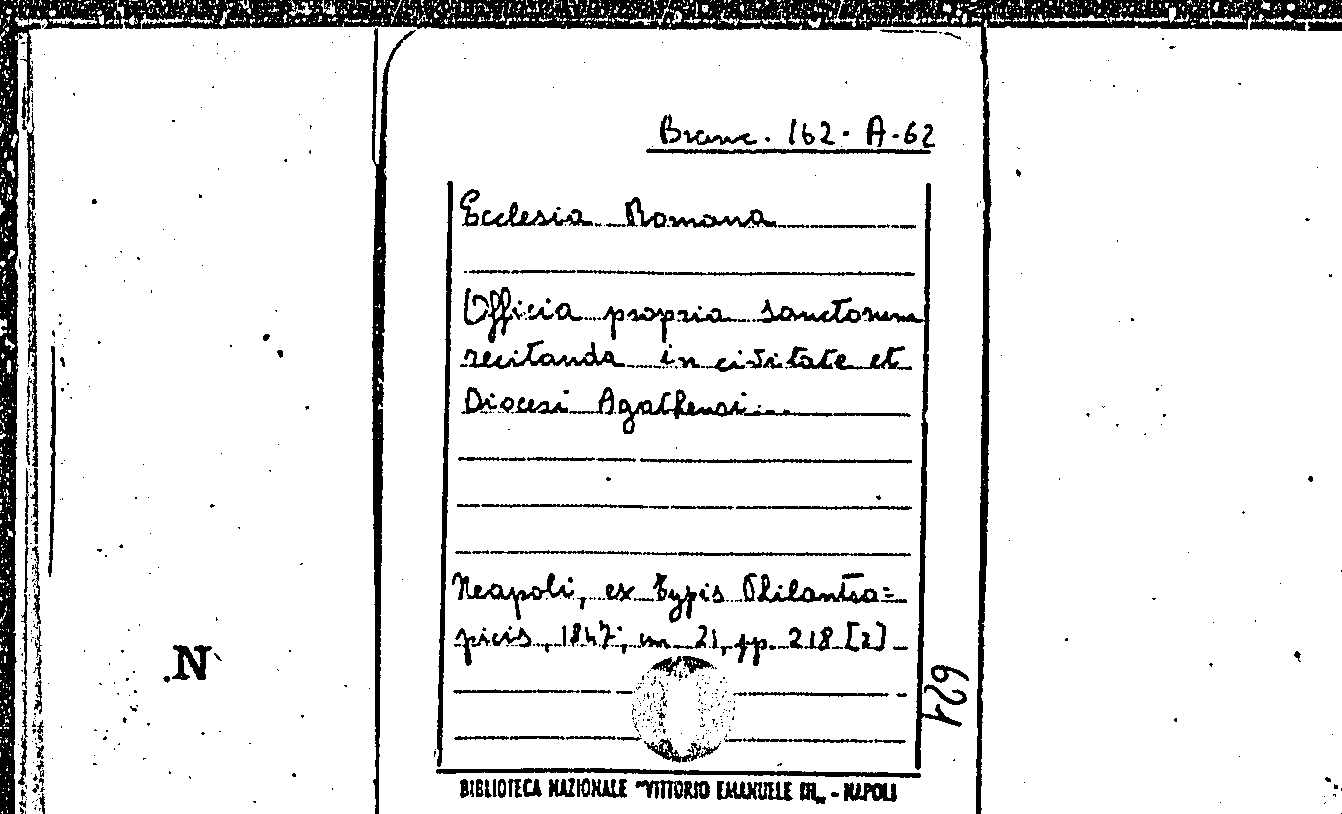 Branc. 162. A-62
Ecclesia Romana
Officia propria sanctorum
recitanda in civitate et
Diocesi Agathensi...
Neapoli, ex typis Philantro=
picis, 1847, cm 21, pp. 218 [2]
624
.N
BIBLIOTECA NAZIONALE "VITTORIO EMANUELE III„ - NAPOLI